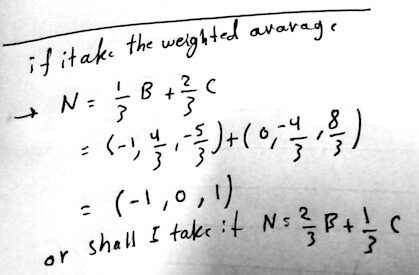 if itake the weighted avarage
→ N = 1/3 B + 2/3 C
= (-1, 4/3, -5/3) + (0, -4/3, 8/3)
= (-1, 0, 1)
or shall I take it N = 2/3 B + 1/3 C